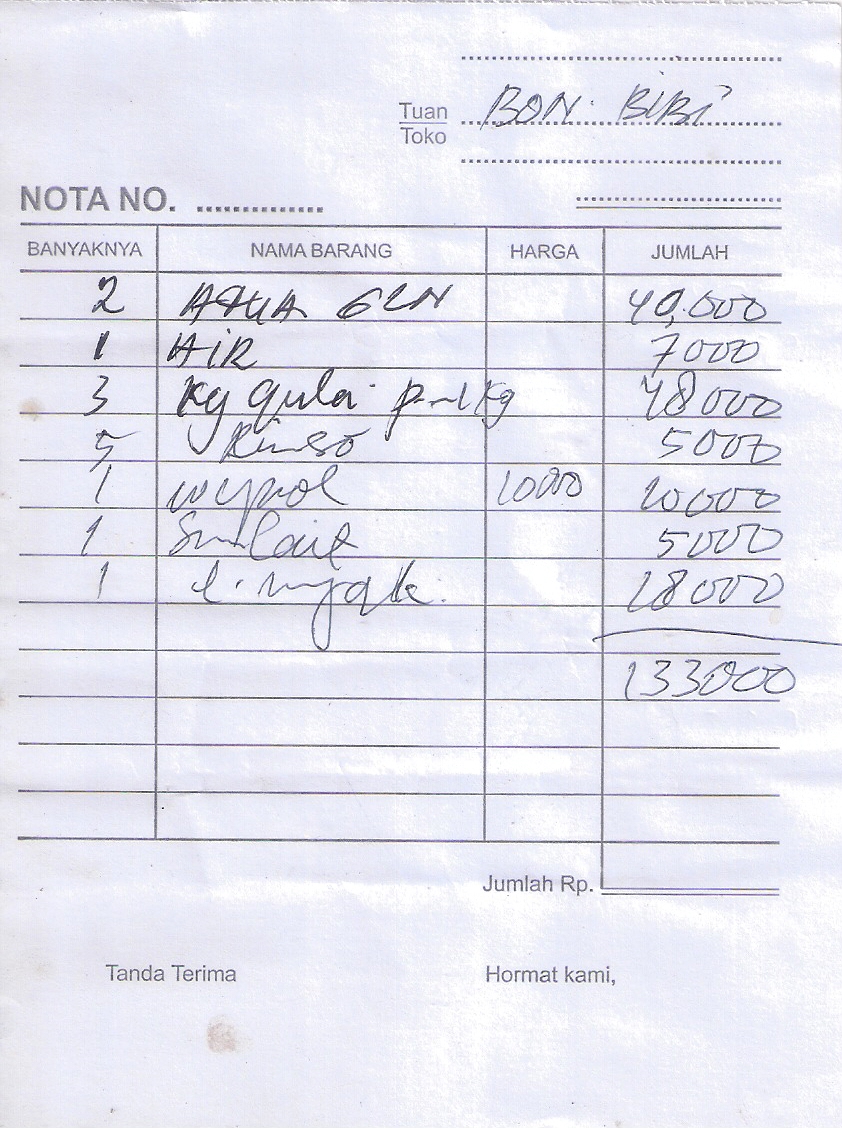 Tuan BON. BIBI
Toko
NOTA NO. ..............
BANYAKNYA NAMA BARANG HARGA JUMLAH
2 AQUA GLN 40,000
1 AIR 7000
3 Kg gula 48000
5 Rinso 5000
1 wypol 10000 10000
1 Sunlait 5000
1 l. myak. 18000
133000
Jumlah Rp.
Tanda Terima Hormat kami,